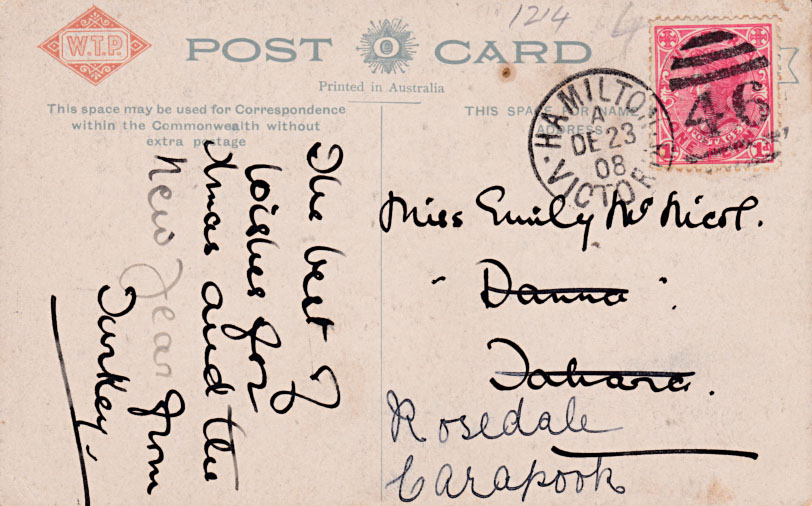 1214
4
W.T.P.
POST CARD
Printed in Australia
This space may be used for Correspondence
within the Commonwealth without
extra postage
THIS SPACE FOR NAME
ADDRESS
HAMILTON
A
DE 23
08
VICTORIA
46
ONE
POSTAGE
1D
The best of
wishes for
Xmas and the
New Year from
Turkey.
Miss Emily McNicol.
" Danna ".
Tahara.
Rosedale
Carapook